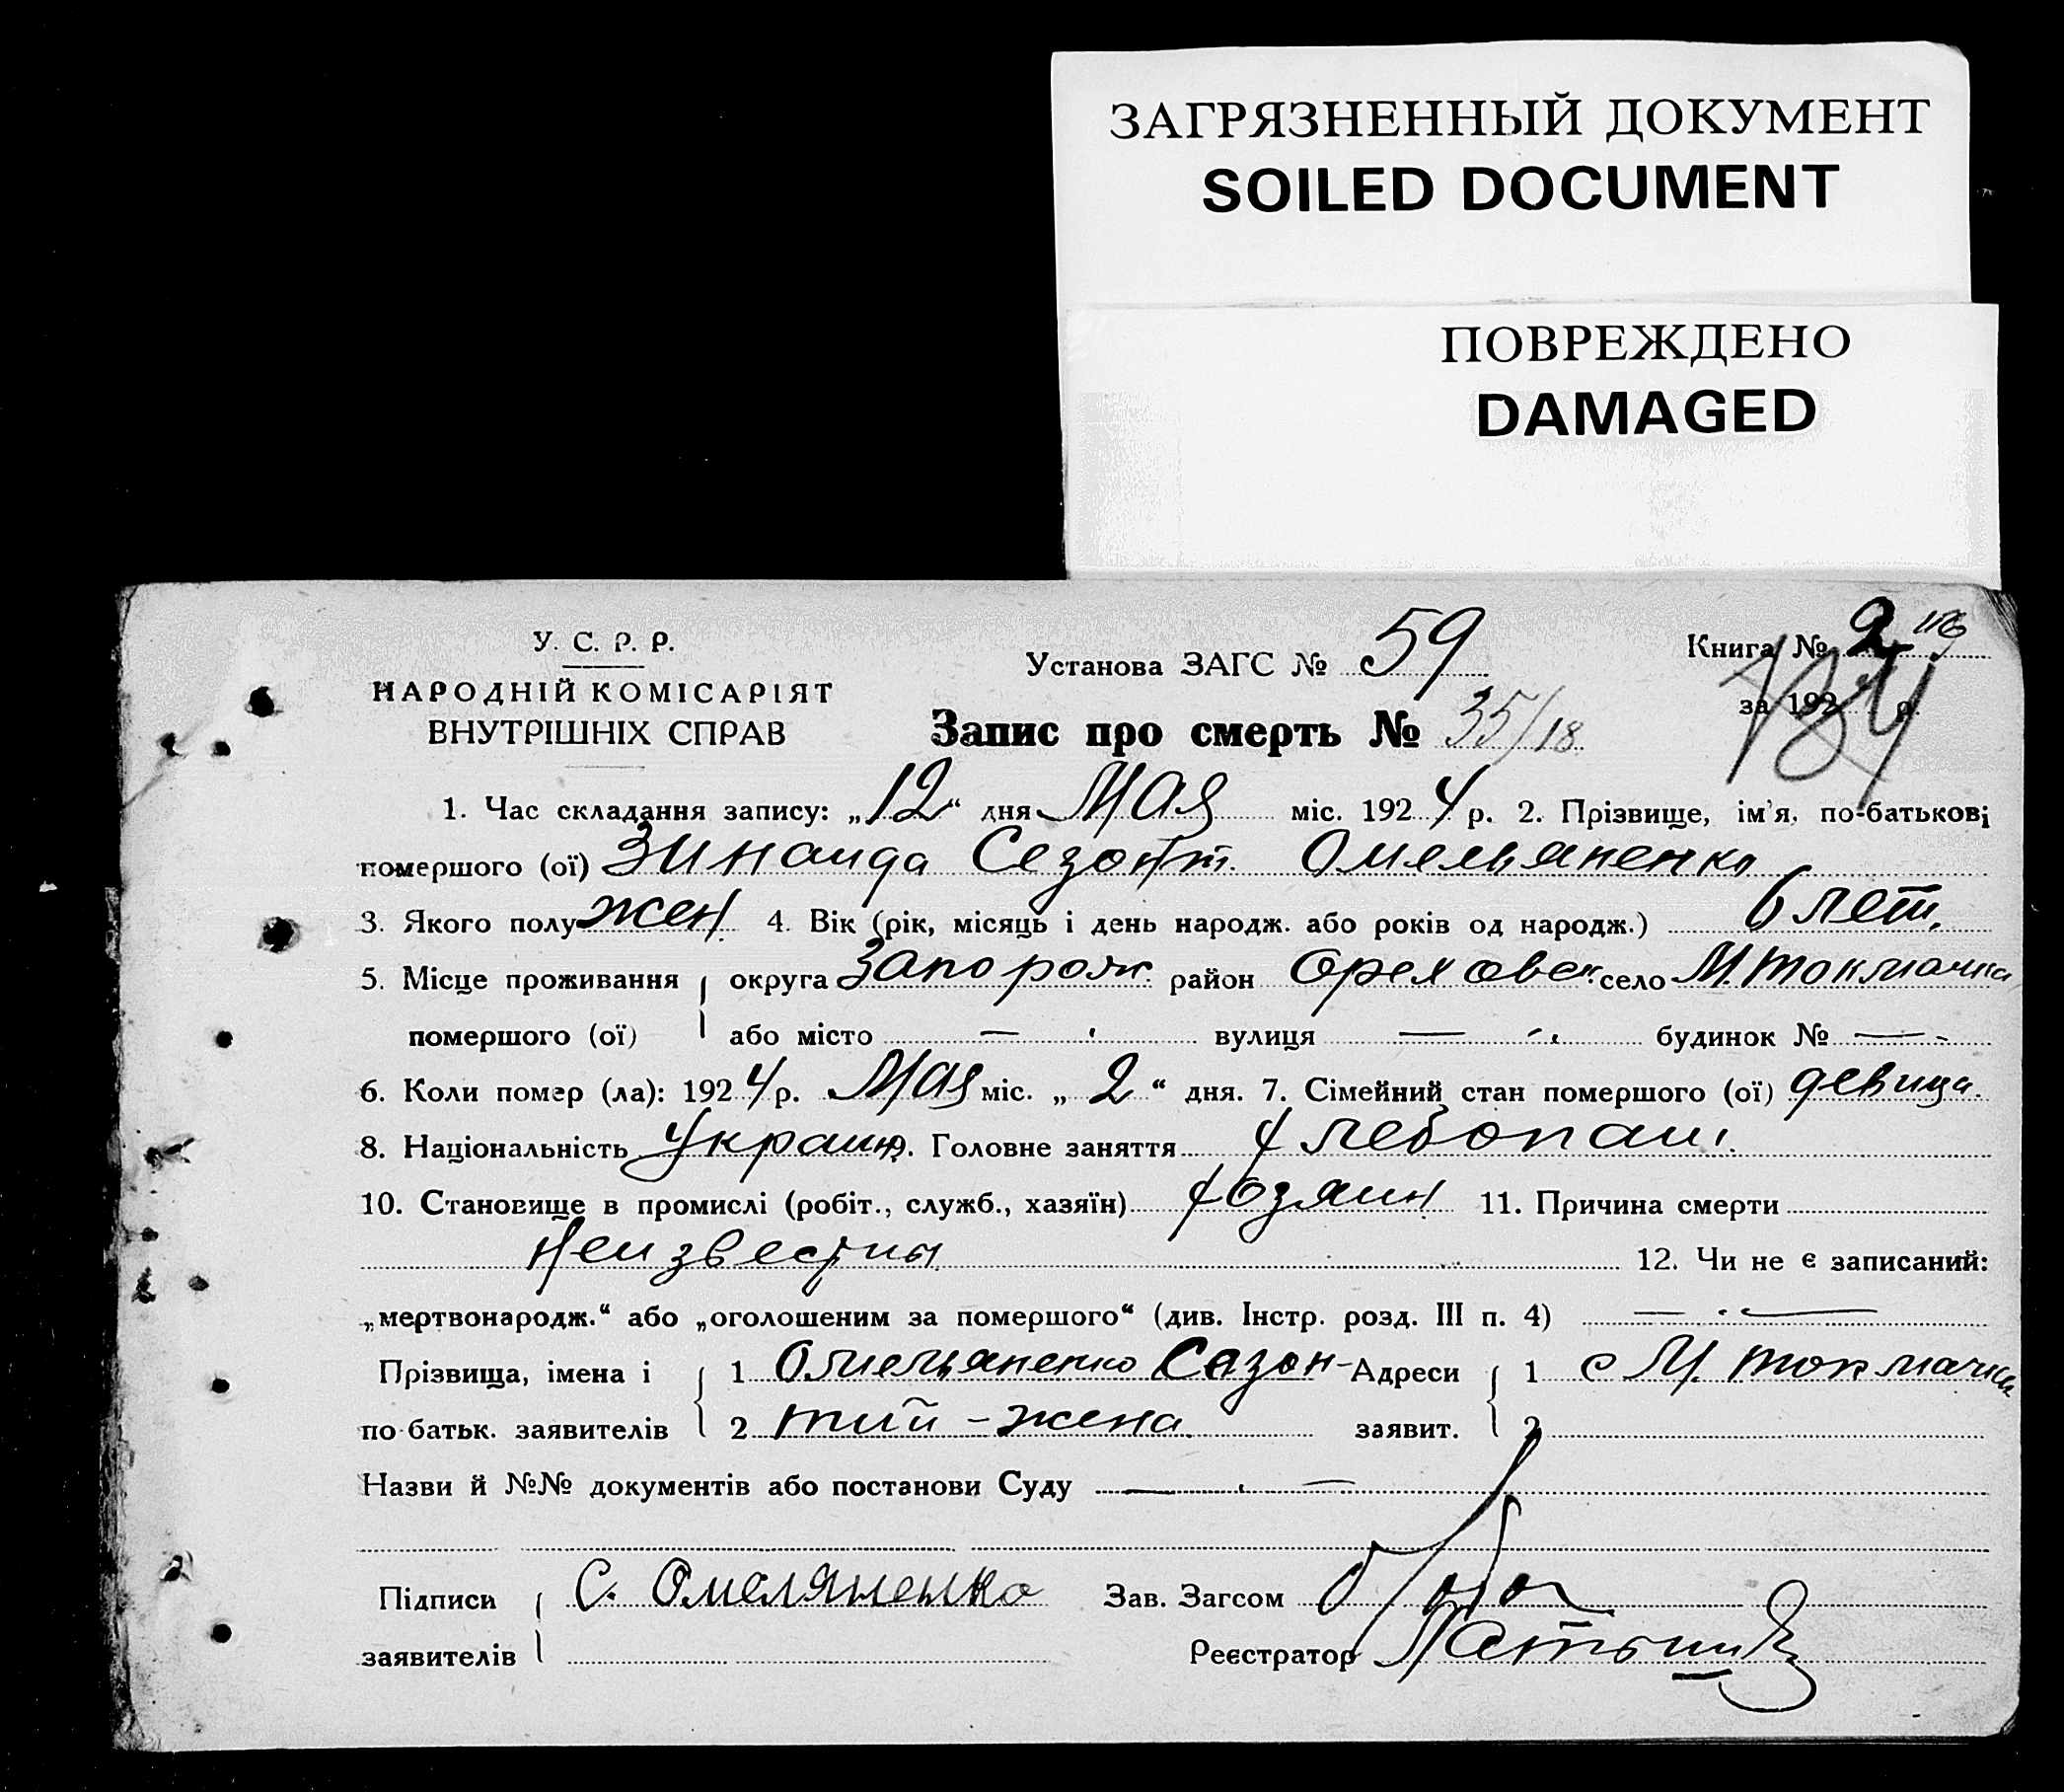 ЗАГРЯЗНЕННЫЙ ДОКУМЕНТ
SOILED DOCUMENT
ПОВРЕЖДЕНО
DAMAGED
У. С. Р. Р.
НАРОДНІЙ КОМІСАРІЯТ
ВНУТРІШНІХ СПРАВ
Установа ЗАГС № 59
Книга № 2
за 192 р.
184
Запис про смерть № 35/18
1. Час складання запису: „12“ дня Мая міс. 1924 р. 2. Прізвище, ім'я, по-батькові
помершого (ої) Зинаида Сезонт. Омельяненко
3. Якого полу жен. 4. Вік (рік, місяць і день народж. або років од народж.) 6 лет.
5. Місце проживання округа Запорож. район Ореховск. село М. Токмачка
помершого (ої) або місто — вулиця — будинок № —
6. Коли помер (ла): 1924 р. Мая міс. „2“ дня. 7. Сімейний стан помершого (ої) девица.
8. Національність Украин. 9. Головне заняття Хлебопаш.
10. Становище в промислі (робіт., служб., хазяїн) Хозяин 11. Причина смерти
Неизвестны 12. Чи не є записаний:
„мертвонародж.“ або „оголошеним за помершого“ (див. Інстр. розд. III п. 4) —
Прізвища, імена і 1 Омельяненко Сазон- Адреси 1 с М. Токмачка
по-батьк. заявителів 2 тий - жена. заявит. 2
Назви й №№ документів або постанови Суду —
Підписи С. Омеляненко Зав. Загсом
заявителів Реєстратор